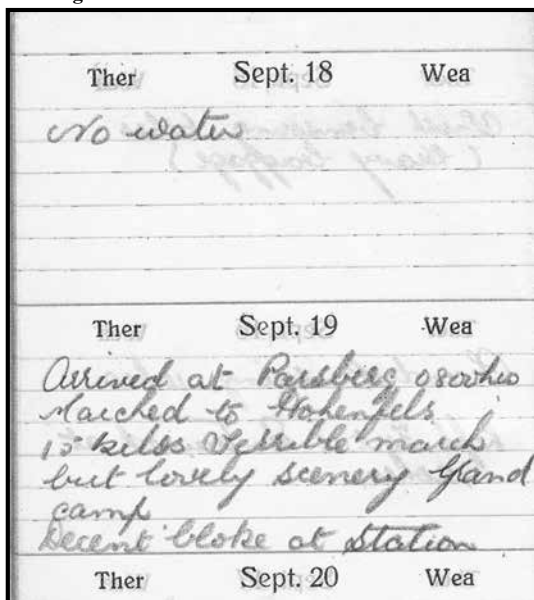 Ther Sept. 18 Wea
No water
Ther Sept. 19 Wea
Arrived at Parsberg 0800hrs
Marched to Hohenfels
15 kilos Terrible march
but lovely scenery Grand
camp
Decent bloke at Station
Ther Sept. 20 Wea